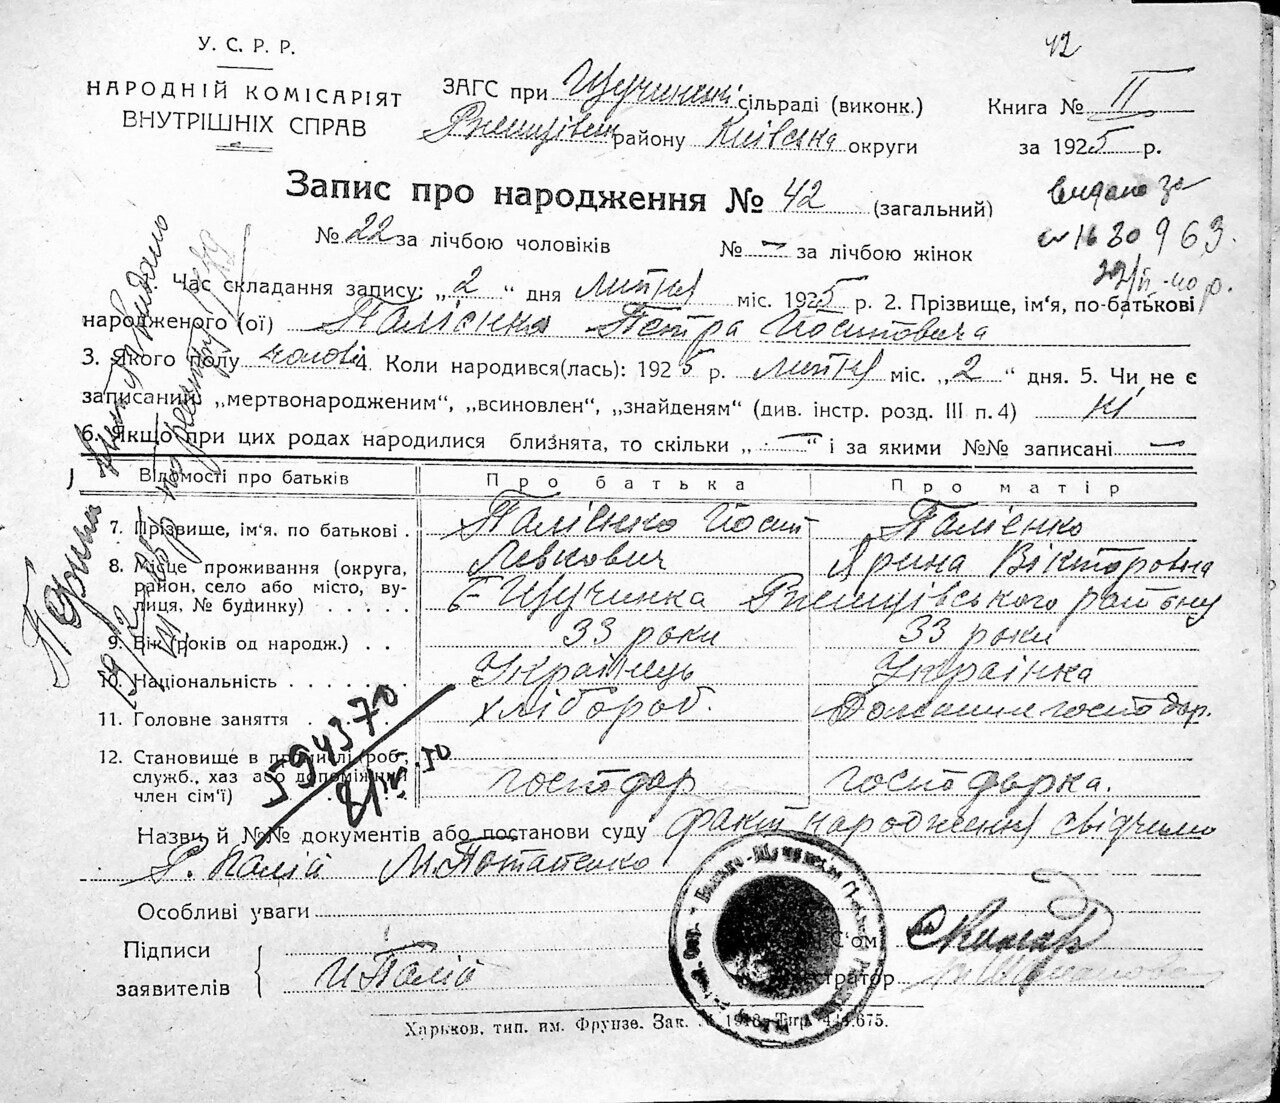 42
У. С. Р. Р.
НАРОДНІЙ КОМІСАРІЯТ
ВНУТРІШНІХ СПРАВ
ЗАГС при Щучинській сільраді (виконк.)
Ржищівськ району Київська округи
Книга № II
за 1925 р.
Запис про народження № 42 (загальний)
№ 22 за лічбою чоловіків № — за лічбою жінок
видано за
963.
Час складання запису: „2“ дня лютня міс. 1925 р. 2. Прізвище, ім'я, по-батькові
народженого (ої) Палієнка Петра Йосиповича
3. Якого полу чолові 4. Коли народився(лась): 1925 р. лютня міс. „2“ дня. 5. Чи не є
записаний „мертвонародженим“, „всиновлен“, „знайденям“ (див. інстр. розд. III п. 4) ні
6. Якщо при цих родах народилися близнята, то скільки „—“ і за якими №№ записані —
Відомості про батьків Про батька Про матір
7. Прізвище, ім'я. по батькові . Палієнко Йосип Палієнко
Левкович Ярина Вікторовна
8. Місце проживання (округа,
район, село або місто, ву-
лиця, № будинку) . . . . . Щучинка Ржищівського району
9. Вік (років од народж.) . . 33 роки 33 роки
10. Національність . . . . . . . Українець Українка
11. Головне заняття . хлібороб. Домашня господар.
12. Становище в промислі (роб.,
служб., хаз або допоміжний
член сім'ї) господар господарка.
594370
8/IV.50
Назви й №№ документів або постанови суду факт народження свідчимо
Палій М Потапенко
Особливі уваги
Підписи
заявителів
Палій
Реєстратор
Харьков, тип. им. Фрунзе. Зак.